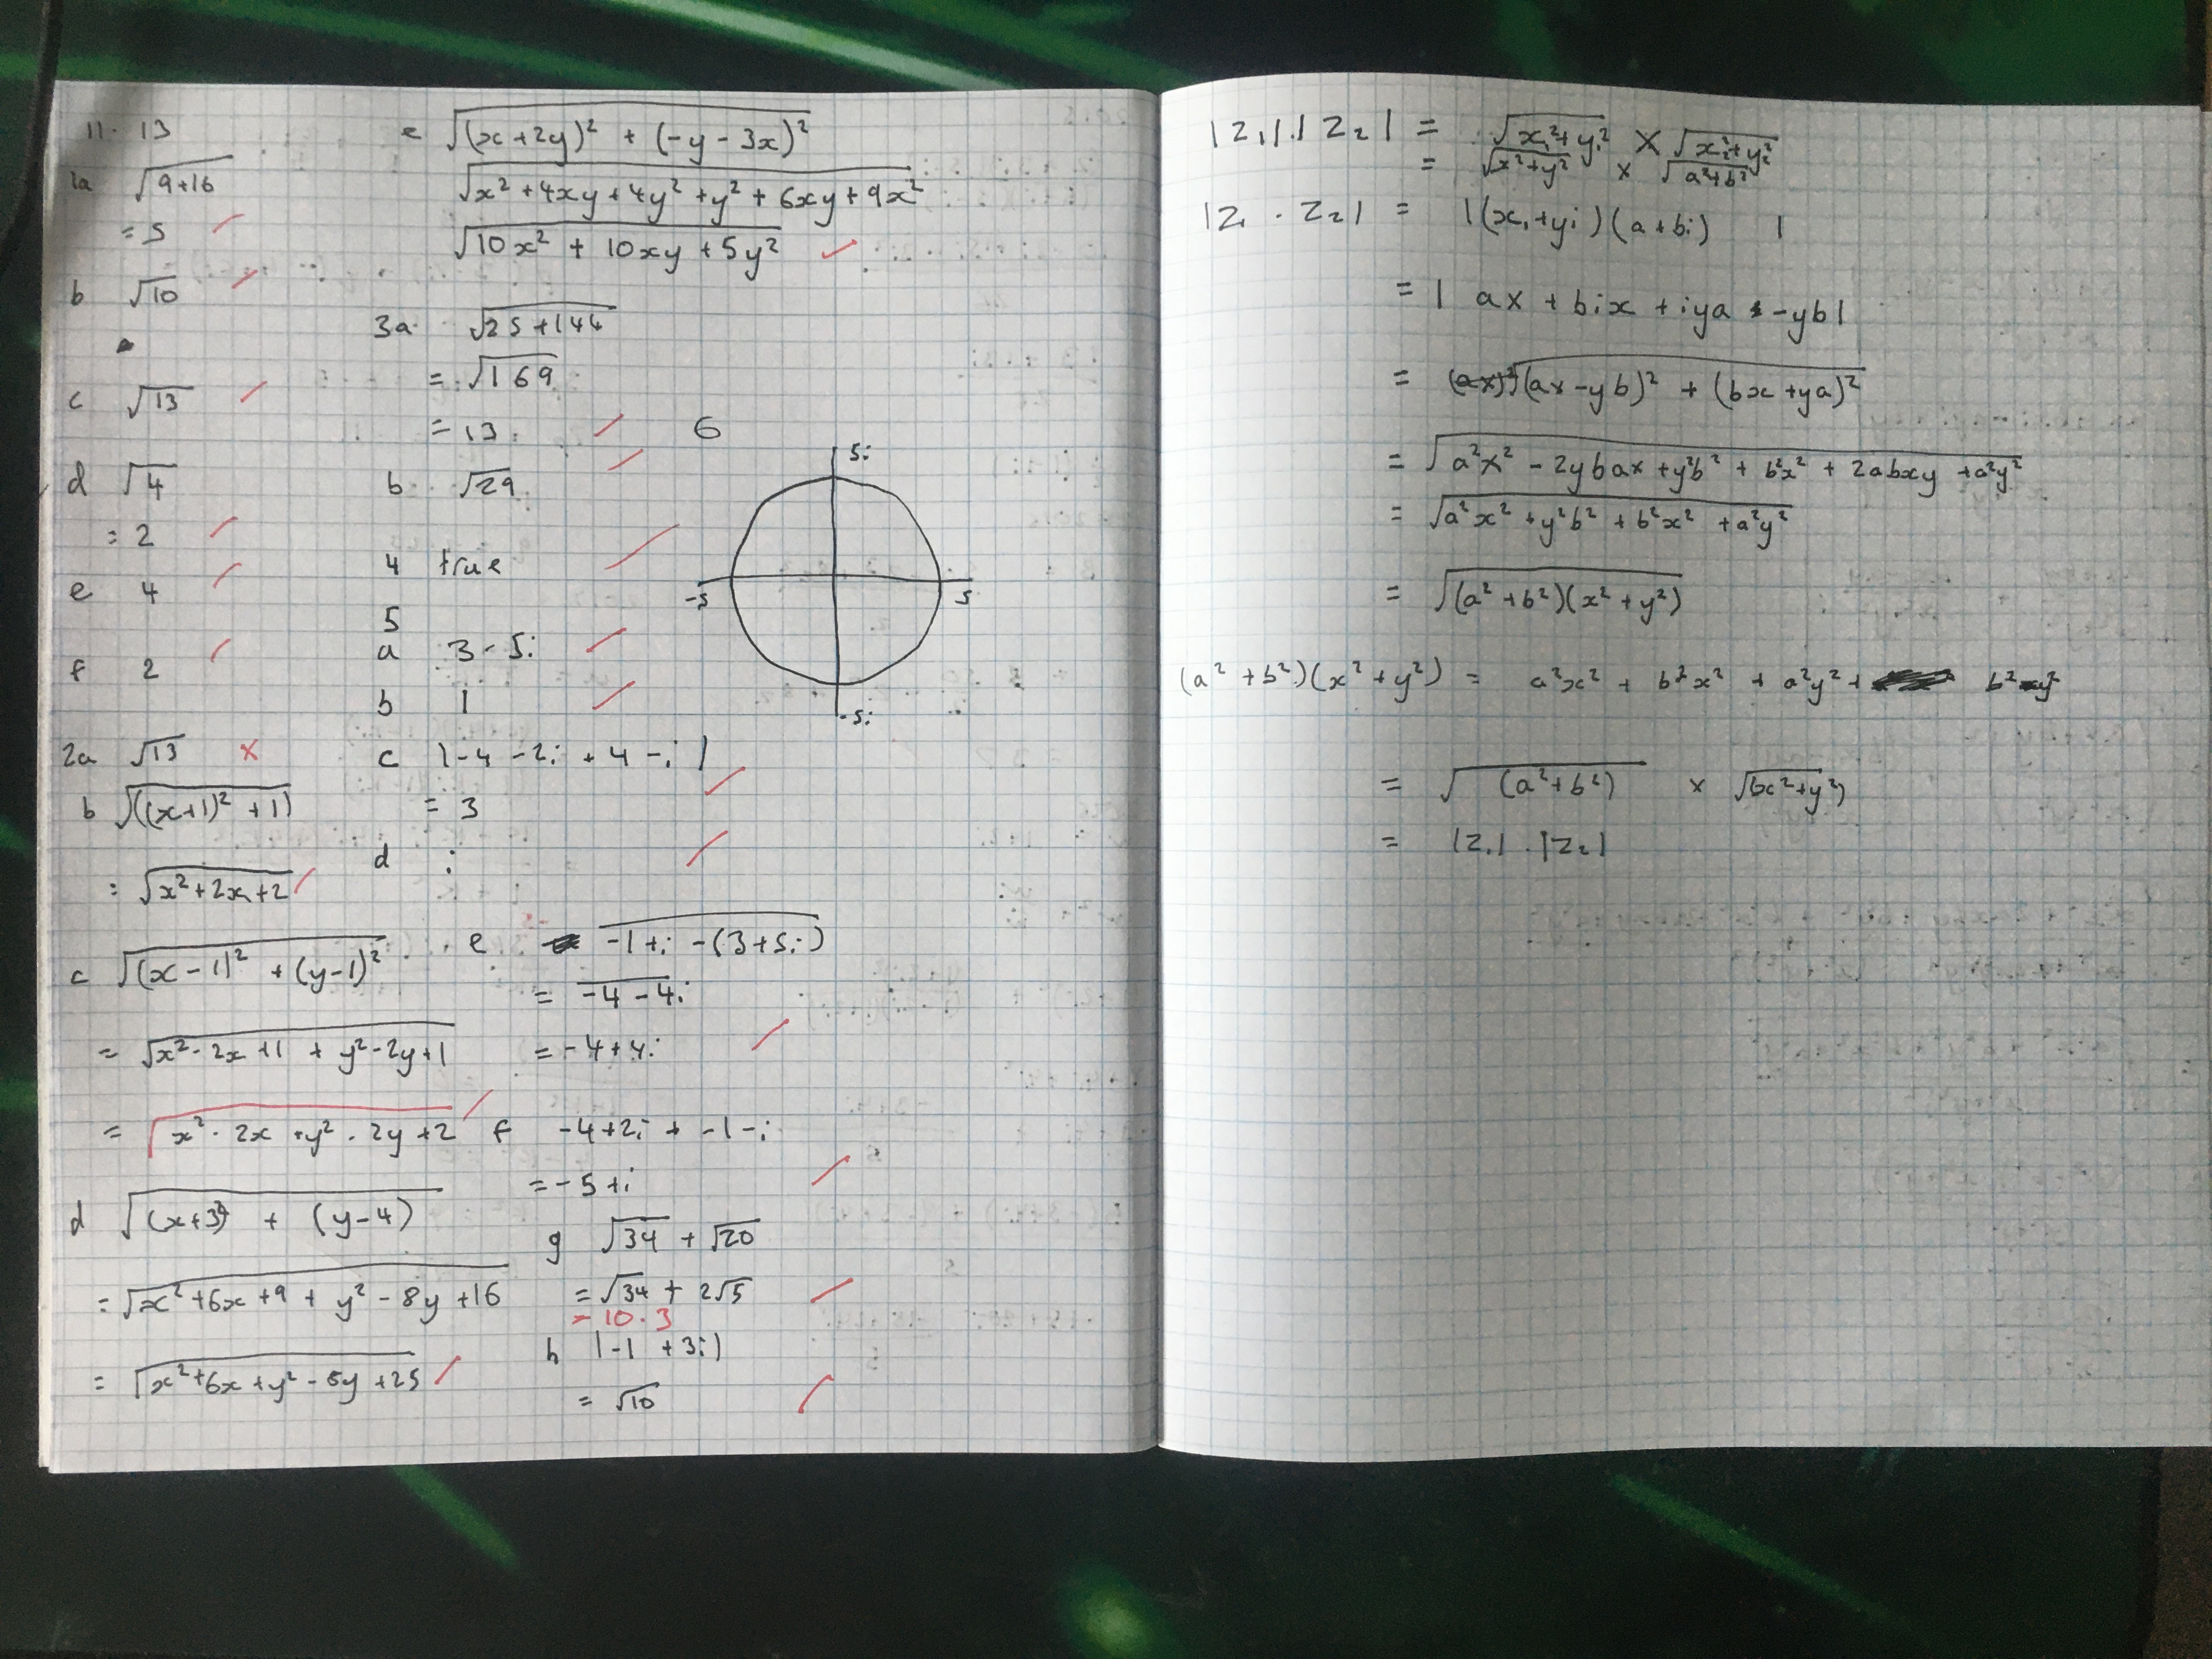 11.13
1a √(9+16)
= 5
b √10
c √13
d √4
= 2
e 4
f 2
2a √13
b √((x+1)² + 1)
= √(x²+2x+2)
c √((x-1)² + (y-1)²)
= √(x²-2x+1 + y²-2y+1)
= √(x²-2x+y²-2y+2)
d √((x+3) + (y-4))
= √(x²+6x+9 + y²-8y+16)
= √(x²+6x+y²-8y+25)
e √((x+2y)² + (-y-3x)²)
√(x²+4xy+4y²+y²+6xy+9x²)
√(10x²+10xy+5y²)
3a √(25+144)
= √169
= 13
b √29
4 true
5
a 3-5i
b 1
c |-4-2i+4-i|
= 3
d i
e -1+i-(3+5i)
= -4-4i
= -4+4i
f -4+2i+-1-i
= -5+i
g √34 + √20
= √34 + 2√5
= 10.3
h |-1+3i|
= √10
6
5i
-5
5
-5i
|z₁|.|z₂| = √(x₁²+y₁²) × √(x₂²+y₂²)
= √(x²+y²) × √(a²+b²)
|z₁.z₂| = |(x+yi)(a+bi)|
= |ax+bix+iya-yb|
= √((ax-yb)² + (bx+ya)²)
= √(a²x²-2ybax+y²b²+b²x²+2abxy+a²y²)
= √(a²x²+y²b²+b²x²+a²y²)
= √((a²+b²)(x²+y²))
(a²+b²)(x²+y²) = a²x²+b²x²+a²y²+b²y²
= √(a²+b²) × √(x²+y²)
= |z₁|.|z₂|